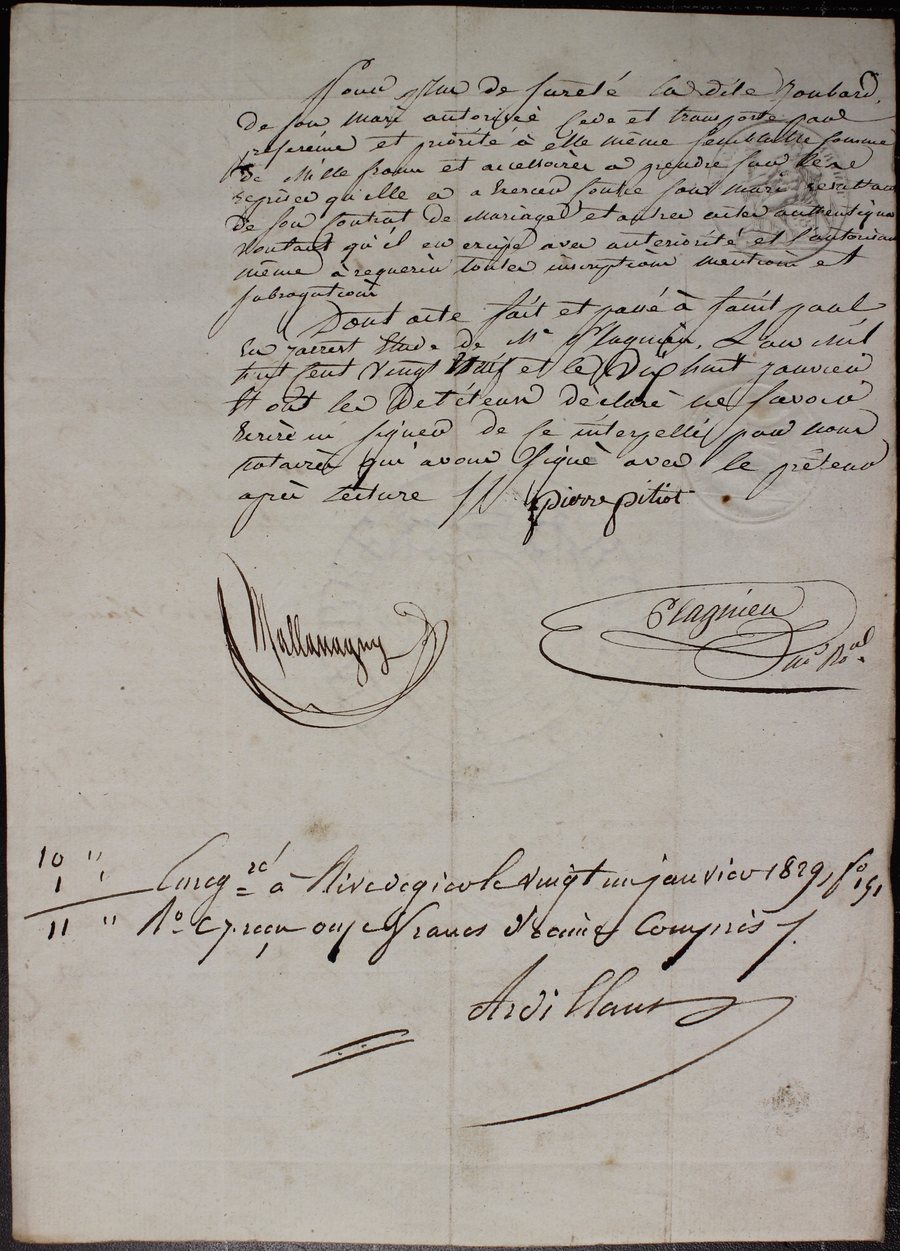 Pour plus de sureté la dite Joubard,
de son mari autorisée cede et transporte par
preference et priorité à elle même semblable somme
de Mille francs et accessoires a prendre sur les
reprises qu'elle a a exercer contre son mari resultant
de son Contrat de Mariage et autres actes authentiques
voulant qu'il en exipe avec anteriorité et l'autorisan
même à requerir toutes inscriptions mentions et
subrogations
Dont acte fait et passé à Saint paul
en Jarrest Etude de Me Plagnieu. L'an mil
huit Cent Vingt Neuf et le Dix huit Janvier
Et ont les Debiteurs déclaré ne savoir
Ecrire ni signer de ce interpellés par nous
notaires qui avons Signé avec le préteur
après lecture // pierre pitiot
Mallavagny Plagnieu
Nre Roal
10 " Enregré à Rivedegier le vingt un janvier 1829, fo 151
1 "
11 " Ro C 7. reçu onze francs Dixième Compris /.
Ardillaux